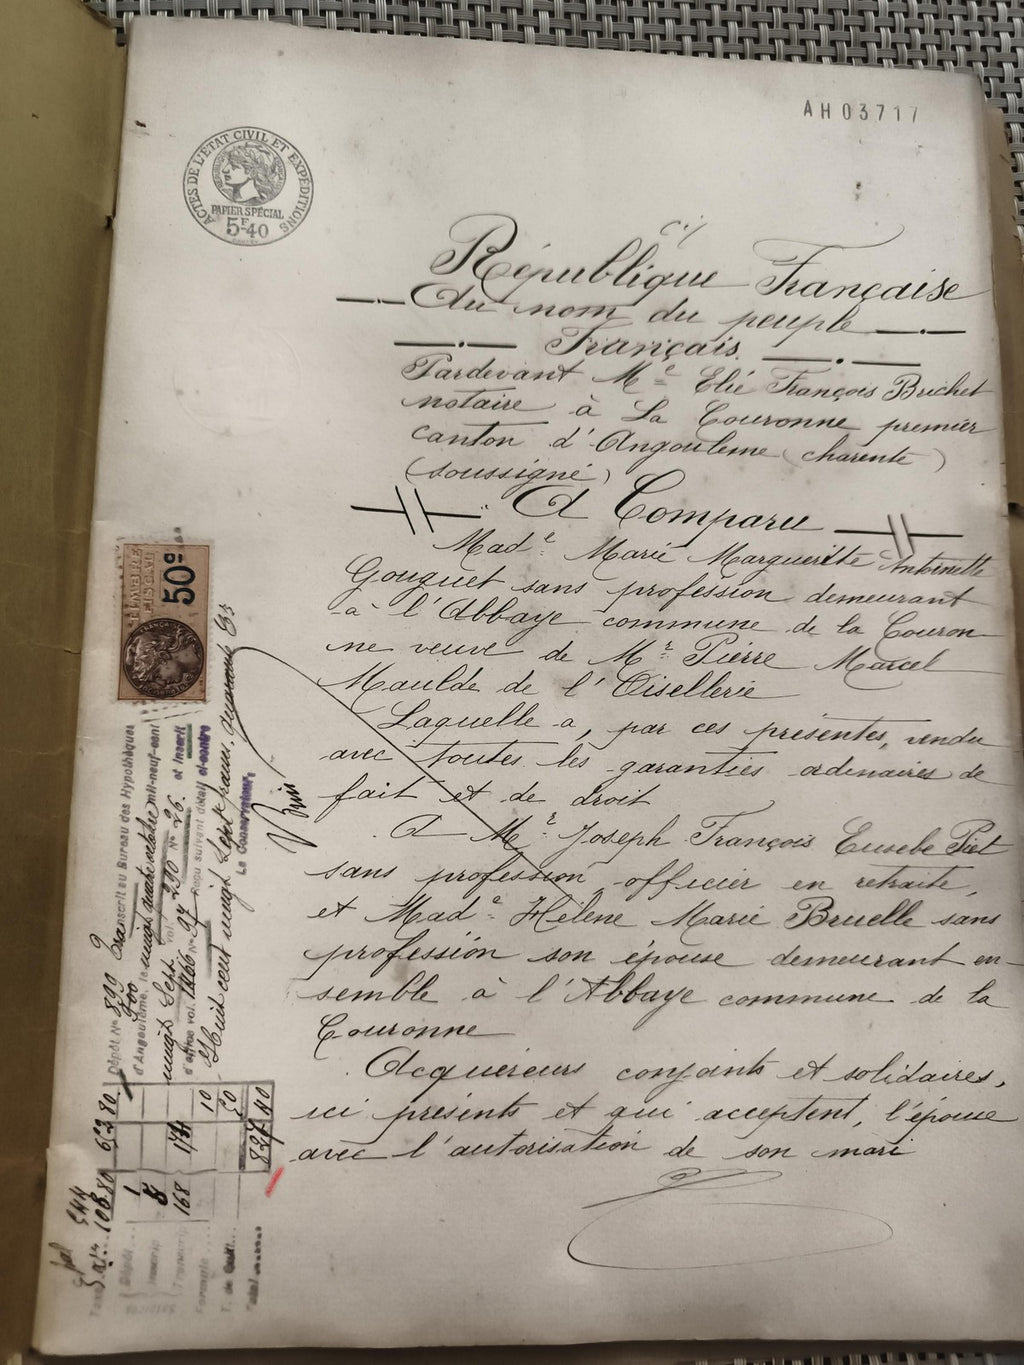 AH03717
ACTES DE L'ETAT CIVIL ET EXPÉDITIONS
PAPIER SPÉCIAL
5F40
République Française
Au nom du peuple
Français.
Pardevant Me Elie François Brichet
notaire à La Couronne premier
canton d'Angoulême (charente)
(soussigné)
A Comparu
Made Marie Marguerite Antoinette
Gouguet sans profession demeurant
à l'Abbaye commune de la Couron
ne veuve de Mr Pierre Marcel
Maulde de l'Oisellerie
Laquelle a, par ces présentes, vendu
avec toutes les garanties ordinaires de
fait et de droit
A Mr Joseph François Eusebe Piet
sans profession officier en retraite,
et Made Hélène Marie Bruelle sans
profession son épouse demeurant en-
semble à l'Abbaye commune de la
Couronne
Acquéreurs conjoints et solidaires,
ici présents et qui acceptent, l'épouse
avec l'autorisation de son mari
TIMBRE
FISCAL
50c
Dépôt No 899 Transcrit au Bureau des Hypothèques
d'Angoulême, le vingt quatre octobre mil-neuf-cent
vingt sept vol. 290 No 26. et inscrit
d'office vol. 1466 No 97 Reçu suivant détail ci-contre
Huit cent vingt sept francs, quarante
Le Conservateur,
632 80
106 80
Dépôt 1
8
168 174
Formule 10
T. de Quitt.
Total 827 40